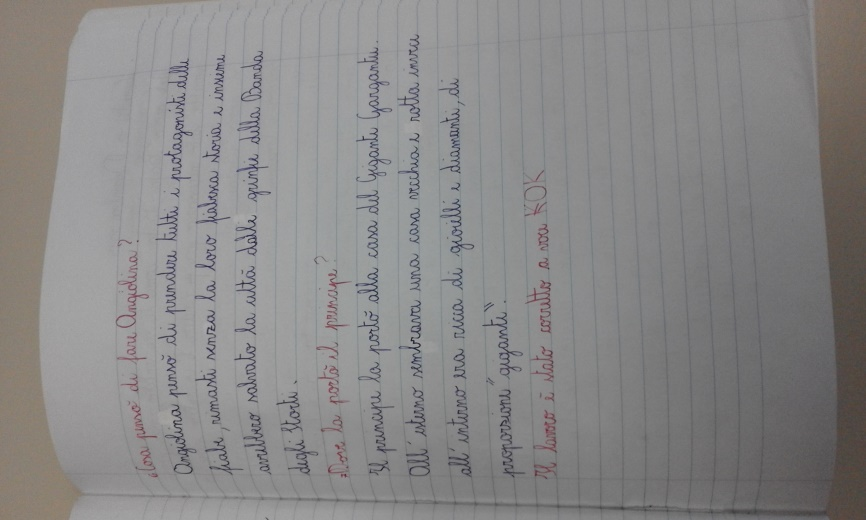 6Cosa pensò di fare Angiolina?
Angiolina pensò di prendere tutti i protagonisti delle
fiabe, rimasti senza la loro fiabesca storia e insieme
avrebbero salvato la città dalle grinfie della Banda
degli Storti.
7Dove la portò il principe?
Il principe la portò alla casa del Gigante Gargantua.
All'esterno sembrava una casa vecchia e rotta invece
all'interno era ricca di gioielli e diamanti, di
proporzione "giganti".
Il lavoro è stato corretto a voce KOK